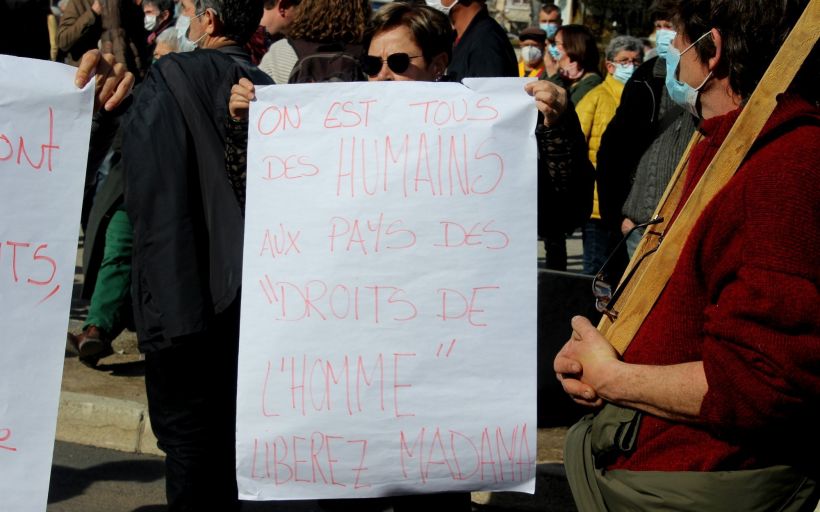 ont
ITS,
ON EST TOUS
DES HUMAINS
AUX PAYS DES
"DROITS DE
L'HOMME"
LIBEREZ MADAMA